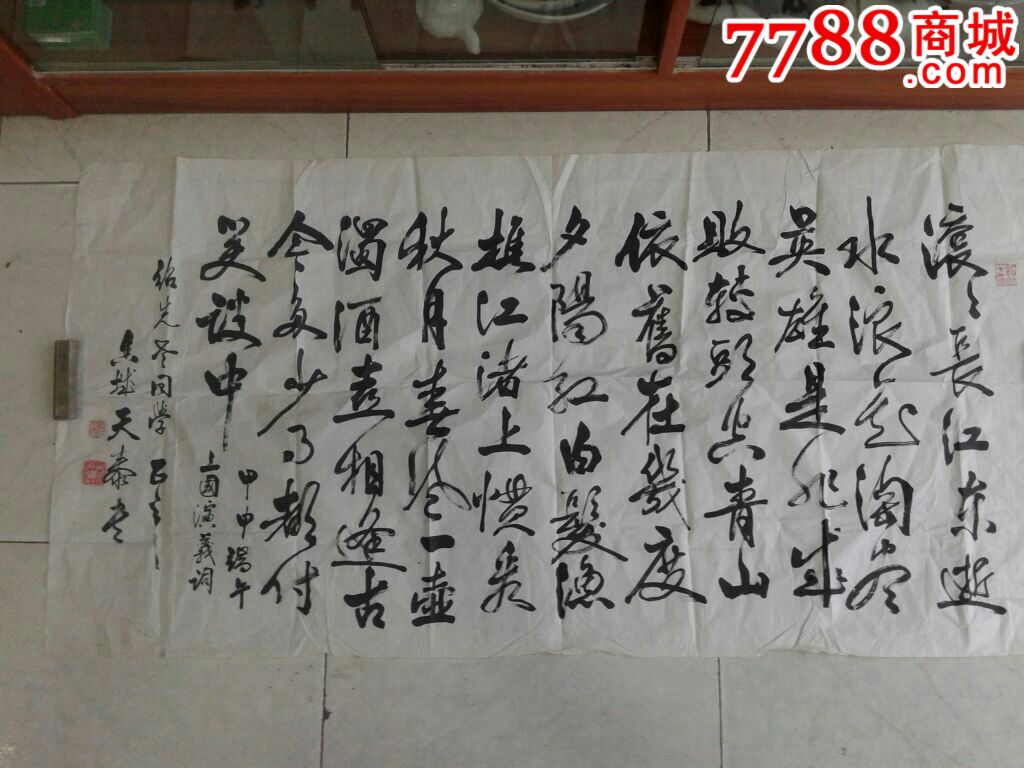 7788商城
.com
滚滚長江东逝
水浪花淘尽
英雄是非成
败转頭空青山
依舊在幾度
夕陽红白髮渔
樵江渚上惯看
秋月春风一壶
濁酒喜相逢古
今多少事都付
笑谈中
甲申端午
三國演義词
绍先老同学 正之
天泰书